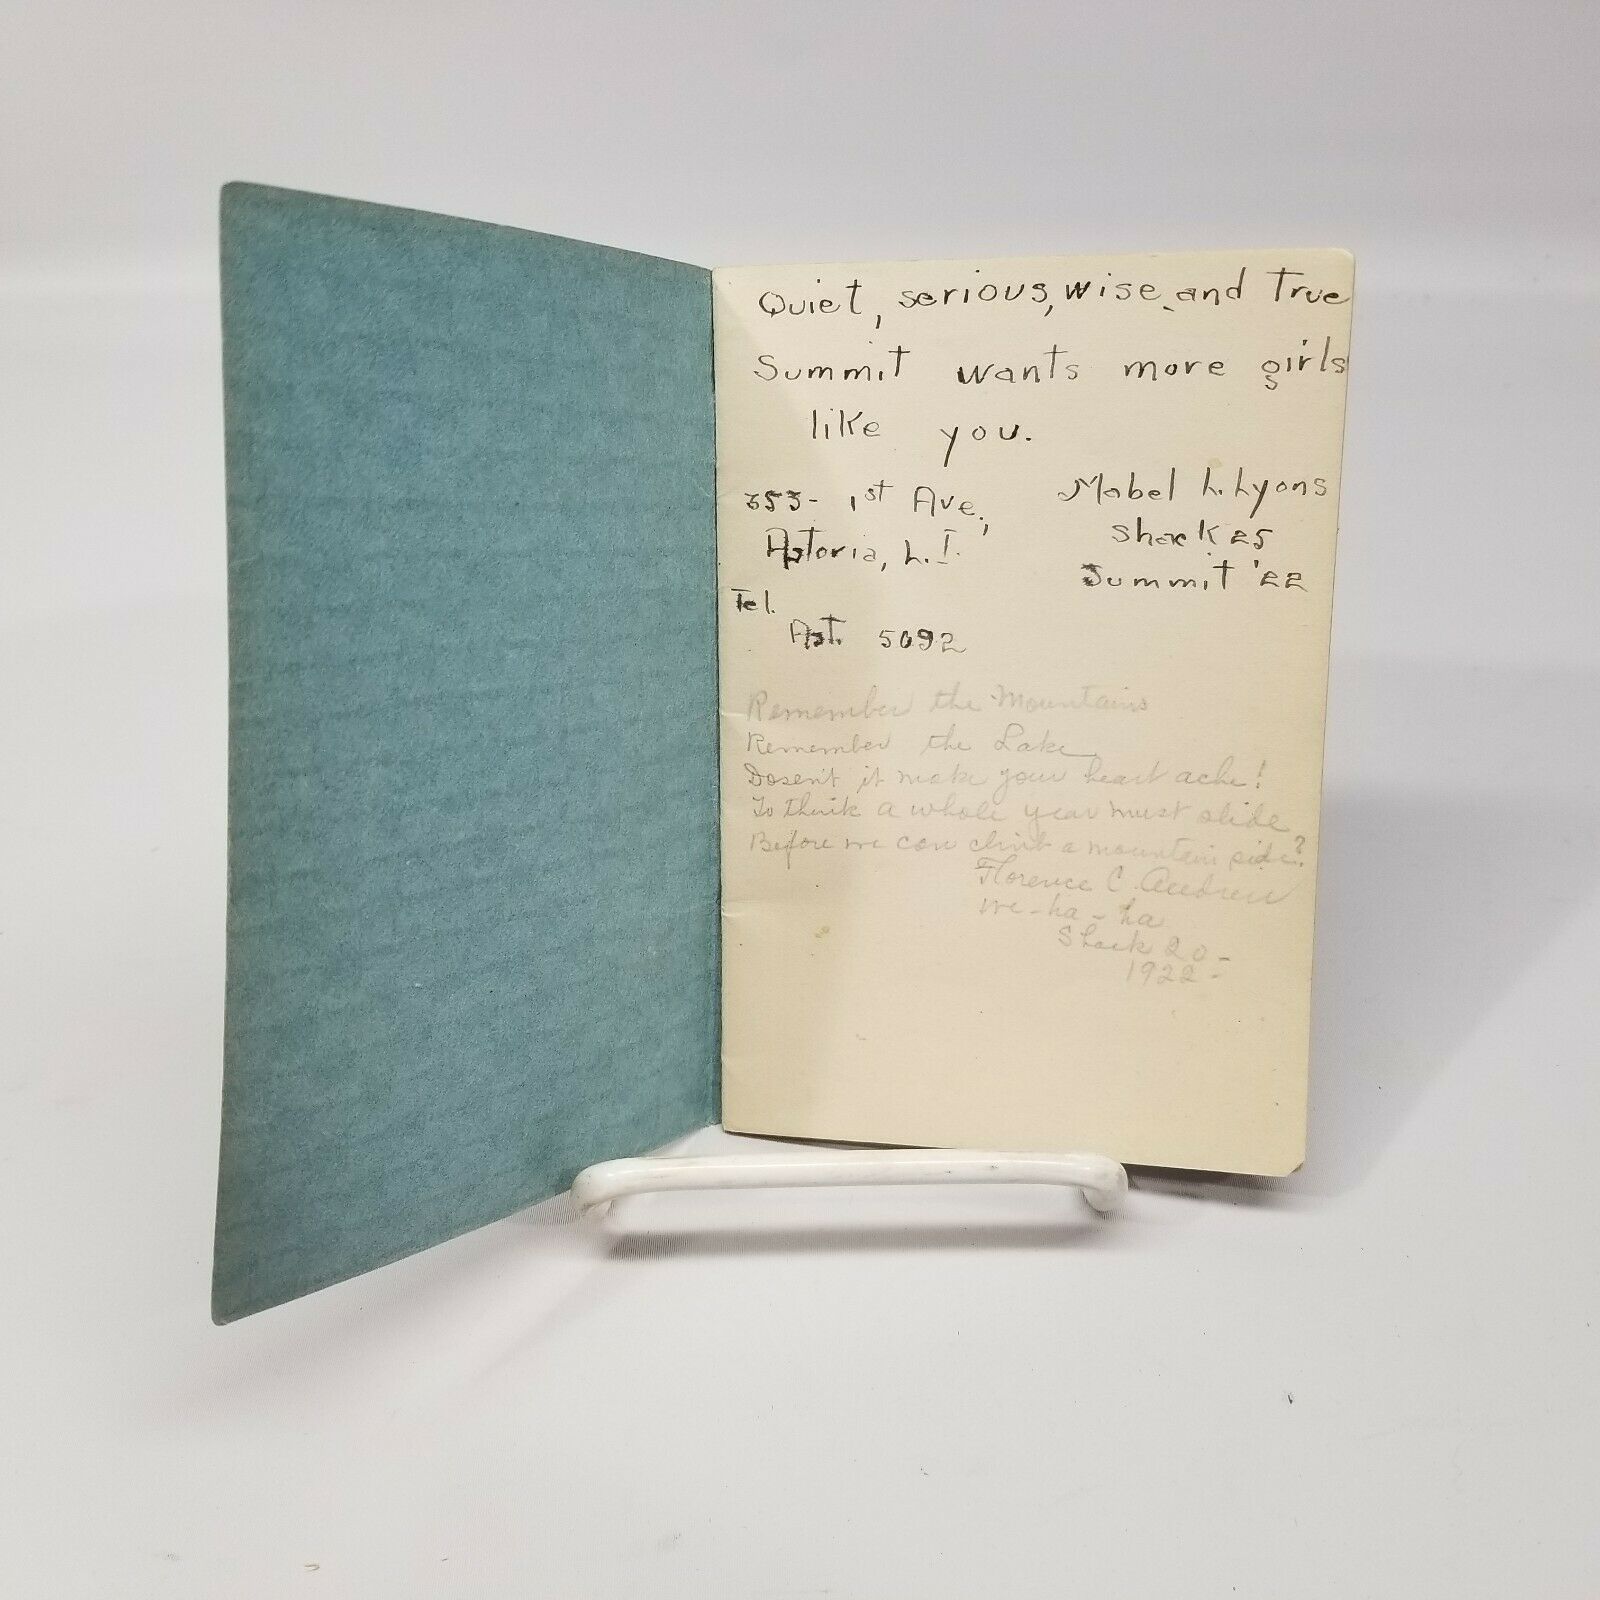 Quiet, serious, wise, and True
Summit wants more girls
like you.
353- 1st Ave.,
Astoria, L.I.
Tel.
Ast. 5092
Mabel L. Lyons
Shack 25
Summit '22
Remember the Mountains
Remember the Lake
Dosen't it make your heart ache!
To think a whole year must slide
Before we can climb a mountain side?
Florence C.
We-ha-ha
Shack 20-
1922-